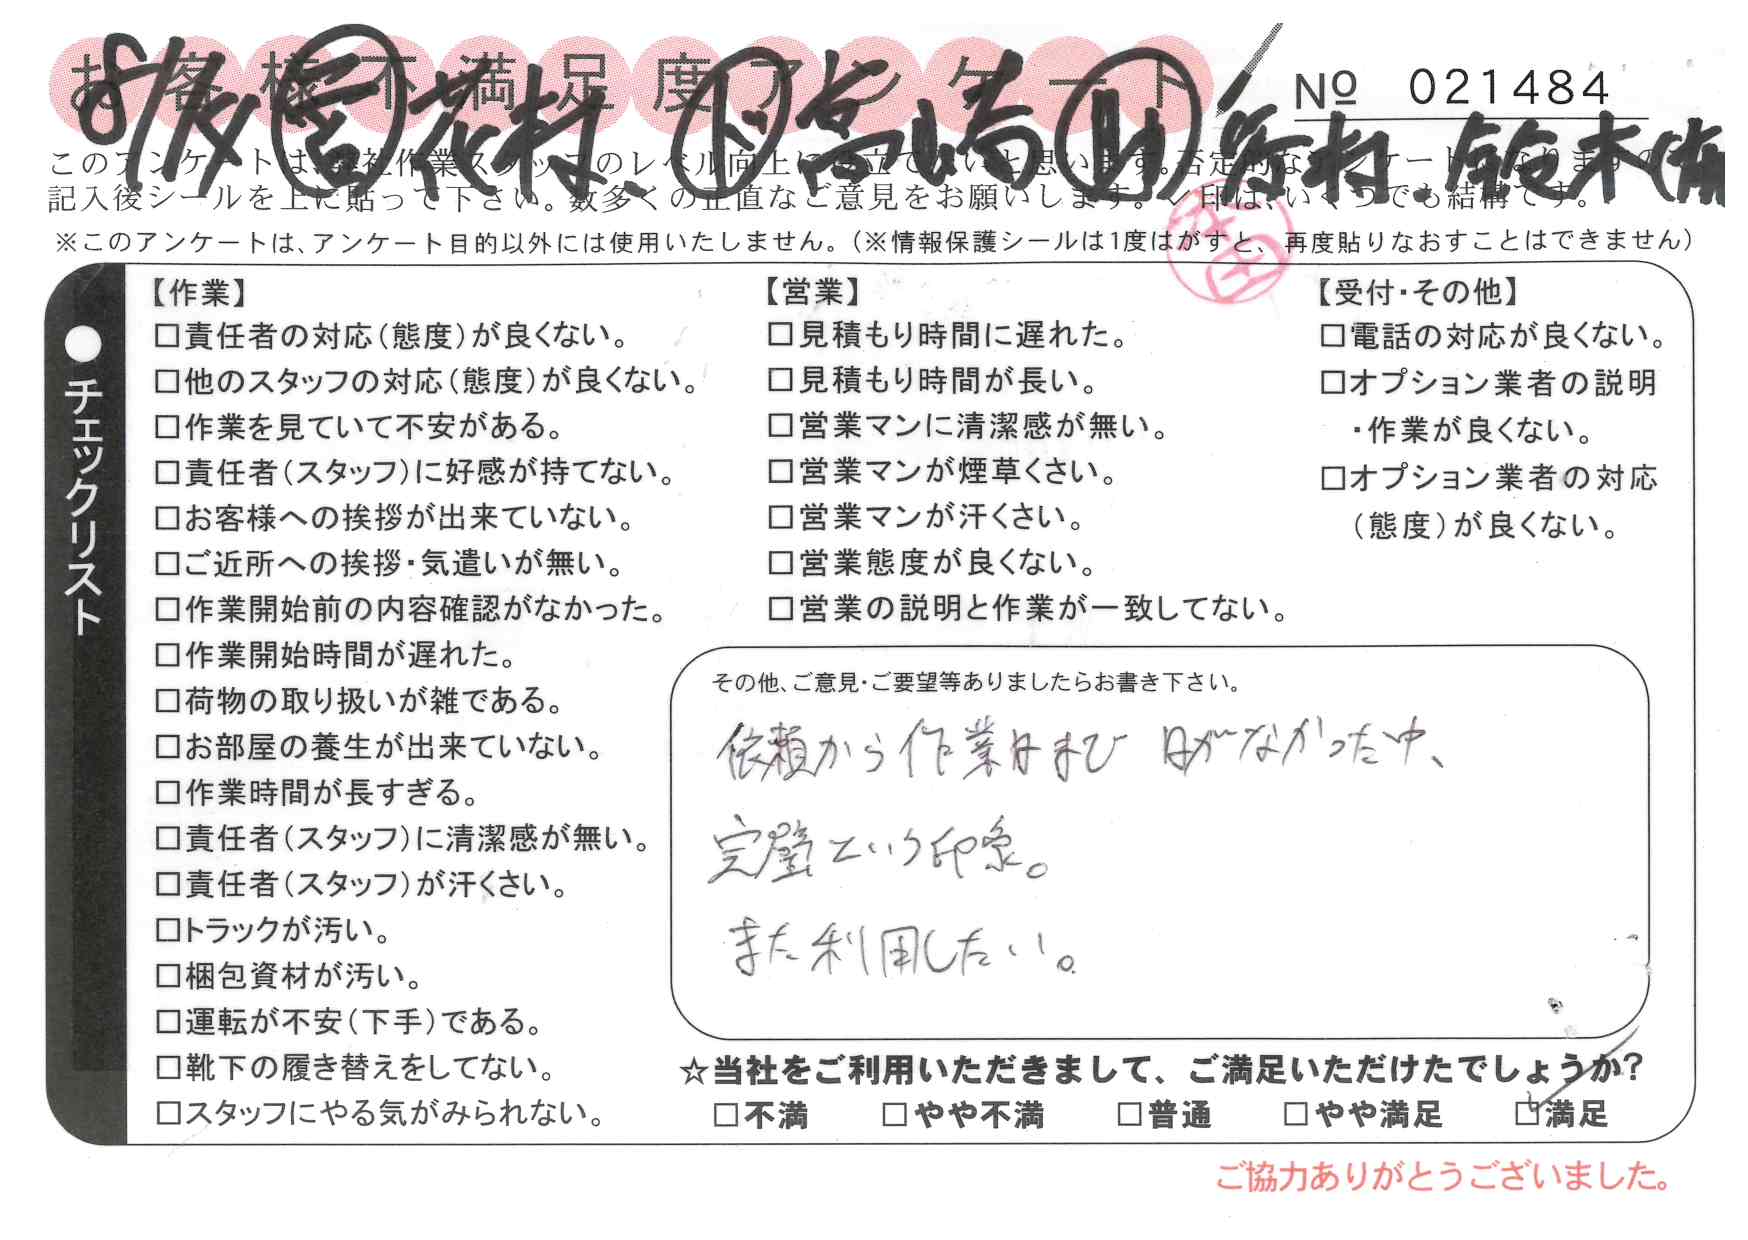 お客様不満足度アンケート
№ 021484
8/18 営 花村、ト 高崎 助 谷村 鈴木
このアンケートは、弊社作業スタッフのレベル向上に役立てたいと思います。否定的なアンケートになりますの
記入後シールを上に貼って下さい。数多くの正直なご意見をお願いします。✓印は、いくつでも結構です。
※このアンケートは、アンケート目的以外には使用いたしません。(※情報保護シールは1度はがすと、再度貼りなおすことはできません)
●チェックリスト
【作業】
□責任者の対応(態度)が良くない。
□他のスタッフの対応(態度)が良くない。
□作業を見ていて不安がある。
□責任者(スタッフ)に好感が持てない。
□お客様への挨拶が出来ていない。
□ご近所への挨拶・気遣いが無い。
□作業開始前の内容確認がなかった。
□作業開始時間が遅れた。
□荷物の取り扱いが雑である。
□お部屋の養生が出来ていない。
□作業時間が長すぎる。
□責任者(スタッフ)に清潔感が無い。
□責任者(スタッフ)が汗くさい。
□トラックが汚い。
□梱包資材が汚い。
□運転が不安(下手)である。
□靴下の履き替えをしてない。
□スタッフにやる気がみられない。
【営業】
□見積もり時間に遅れた。
□見積もり時間が長い。
□営業マンに清潔感が無い。
□営業マンが煙草くさい。
□営業マンが汗くさい。
□営業態度が良くない。
□営業の説明と作業が一致してない。
【受付・その他】
□電話の対応が良くない。
□オプション業者の説明
・作業が良くない。
□オプション業者の対応
(態度)が良くない。
その他、ご意見・ご要望等ありましたらお書き下さい。
依頼から作業日まで日がなかった中、
完璧という印象。
また利用したい。
☆当社をご利用いただきまして、ご満足いただけたでしょうか?
□不満 □やや不満 □普通 □やや満足 ☑満足
ご協力ありがとうございました。